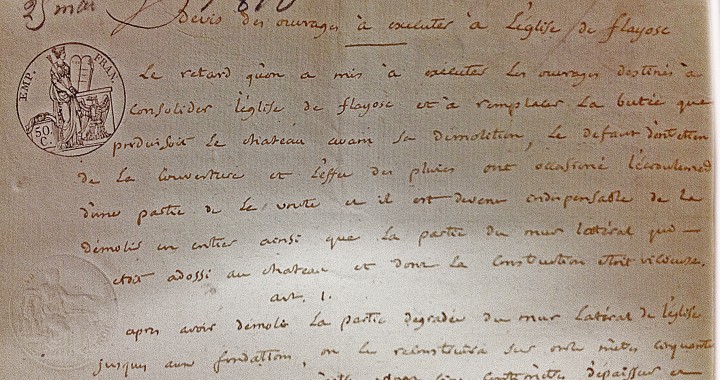 25 mai 1810
Devis des ouvrages à executer à l'église de flayosc
EMP. FRAN.
50. C.
Le retard qu'on a mis à executer les ouvrages destinés à
consolider l'église de flayosc et à remplacer la butée que
produisoit le chateau avant sa démolition, le defaut d'entretien
de la couverture et l'effet des pluies ont occasioné l'écroulement
d'une partie de la voute et il est devenu indispensable de la
démolir en entier ainsi que la partie du mur latéral qui
etoit adossé au chateau et dont la construction etoit vicieuse.
art. 1.
apres avoir démoli la partie degradée du mur latéral de l'église
jusques aux fondations, on le reconstruira sur onze mètres cinquante
d'épaisseur